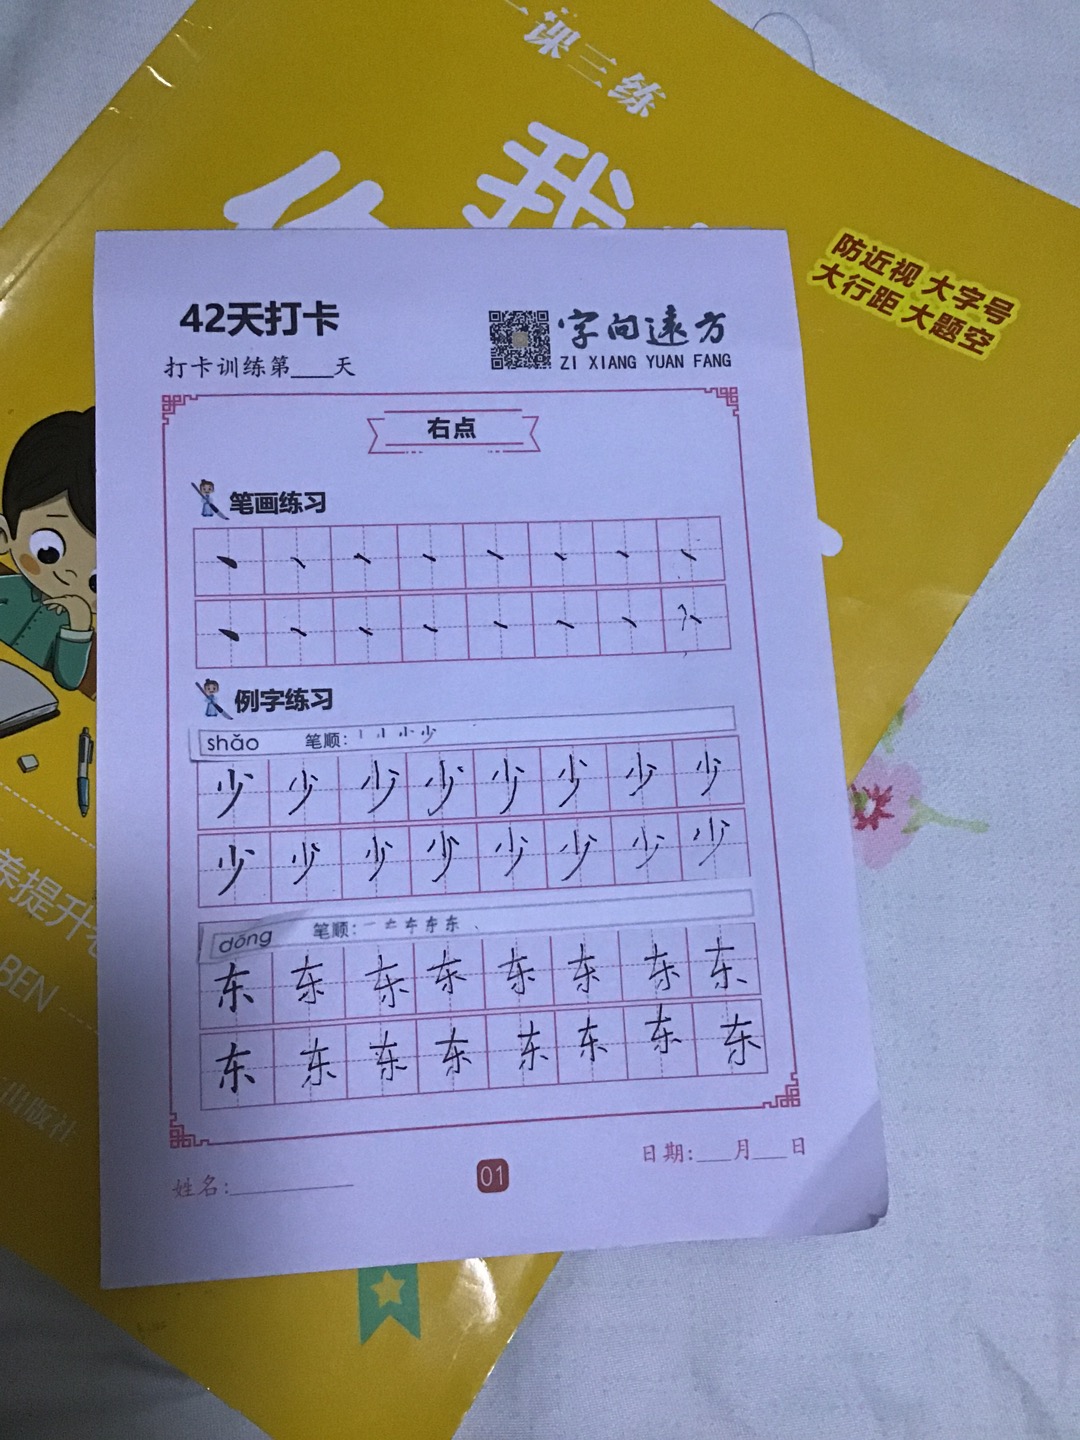 课三练
我
防近视 大字号
大行距 大题空
42天打卡
字向远方
打卡训练第____天
ZI XIANG YUAN FANG
右点
笔画练习
例字练习
shǎo 笔顺:
少 少 少 少 少 少 少 少
少 少 少 少 少 少 少 少
dōng 笔顺:
东 东 东 东 东 东 东 东
东 东 东 东 东 东 东 东
日期:___月___日
姓名:
01
养提升
BEN
出版社